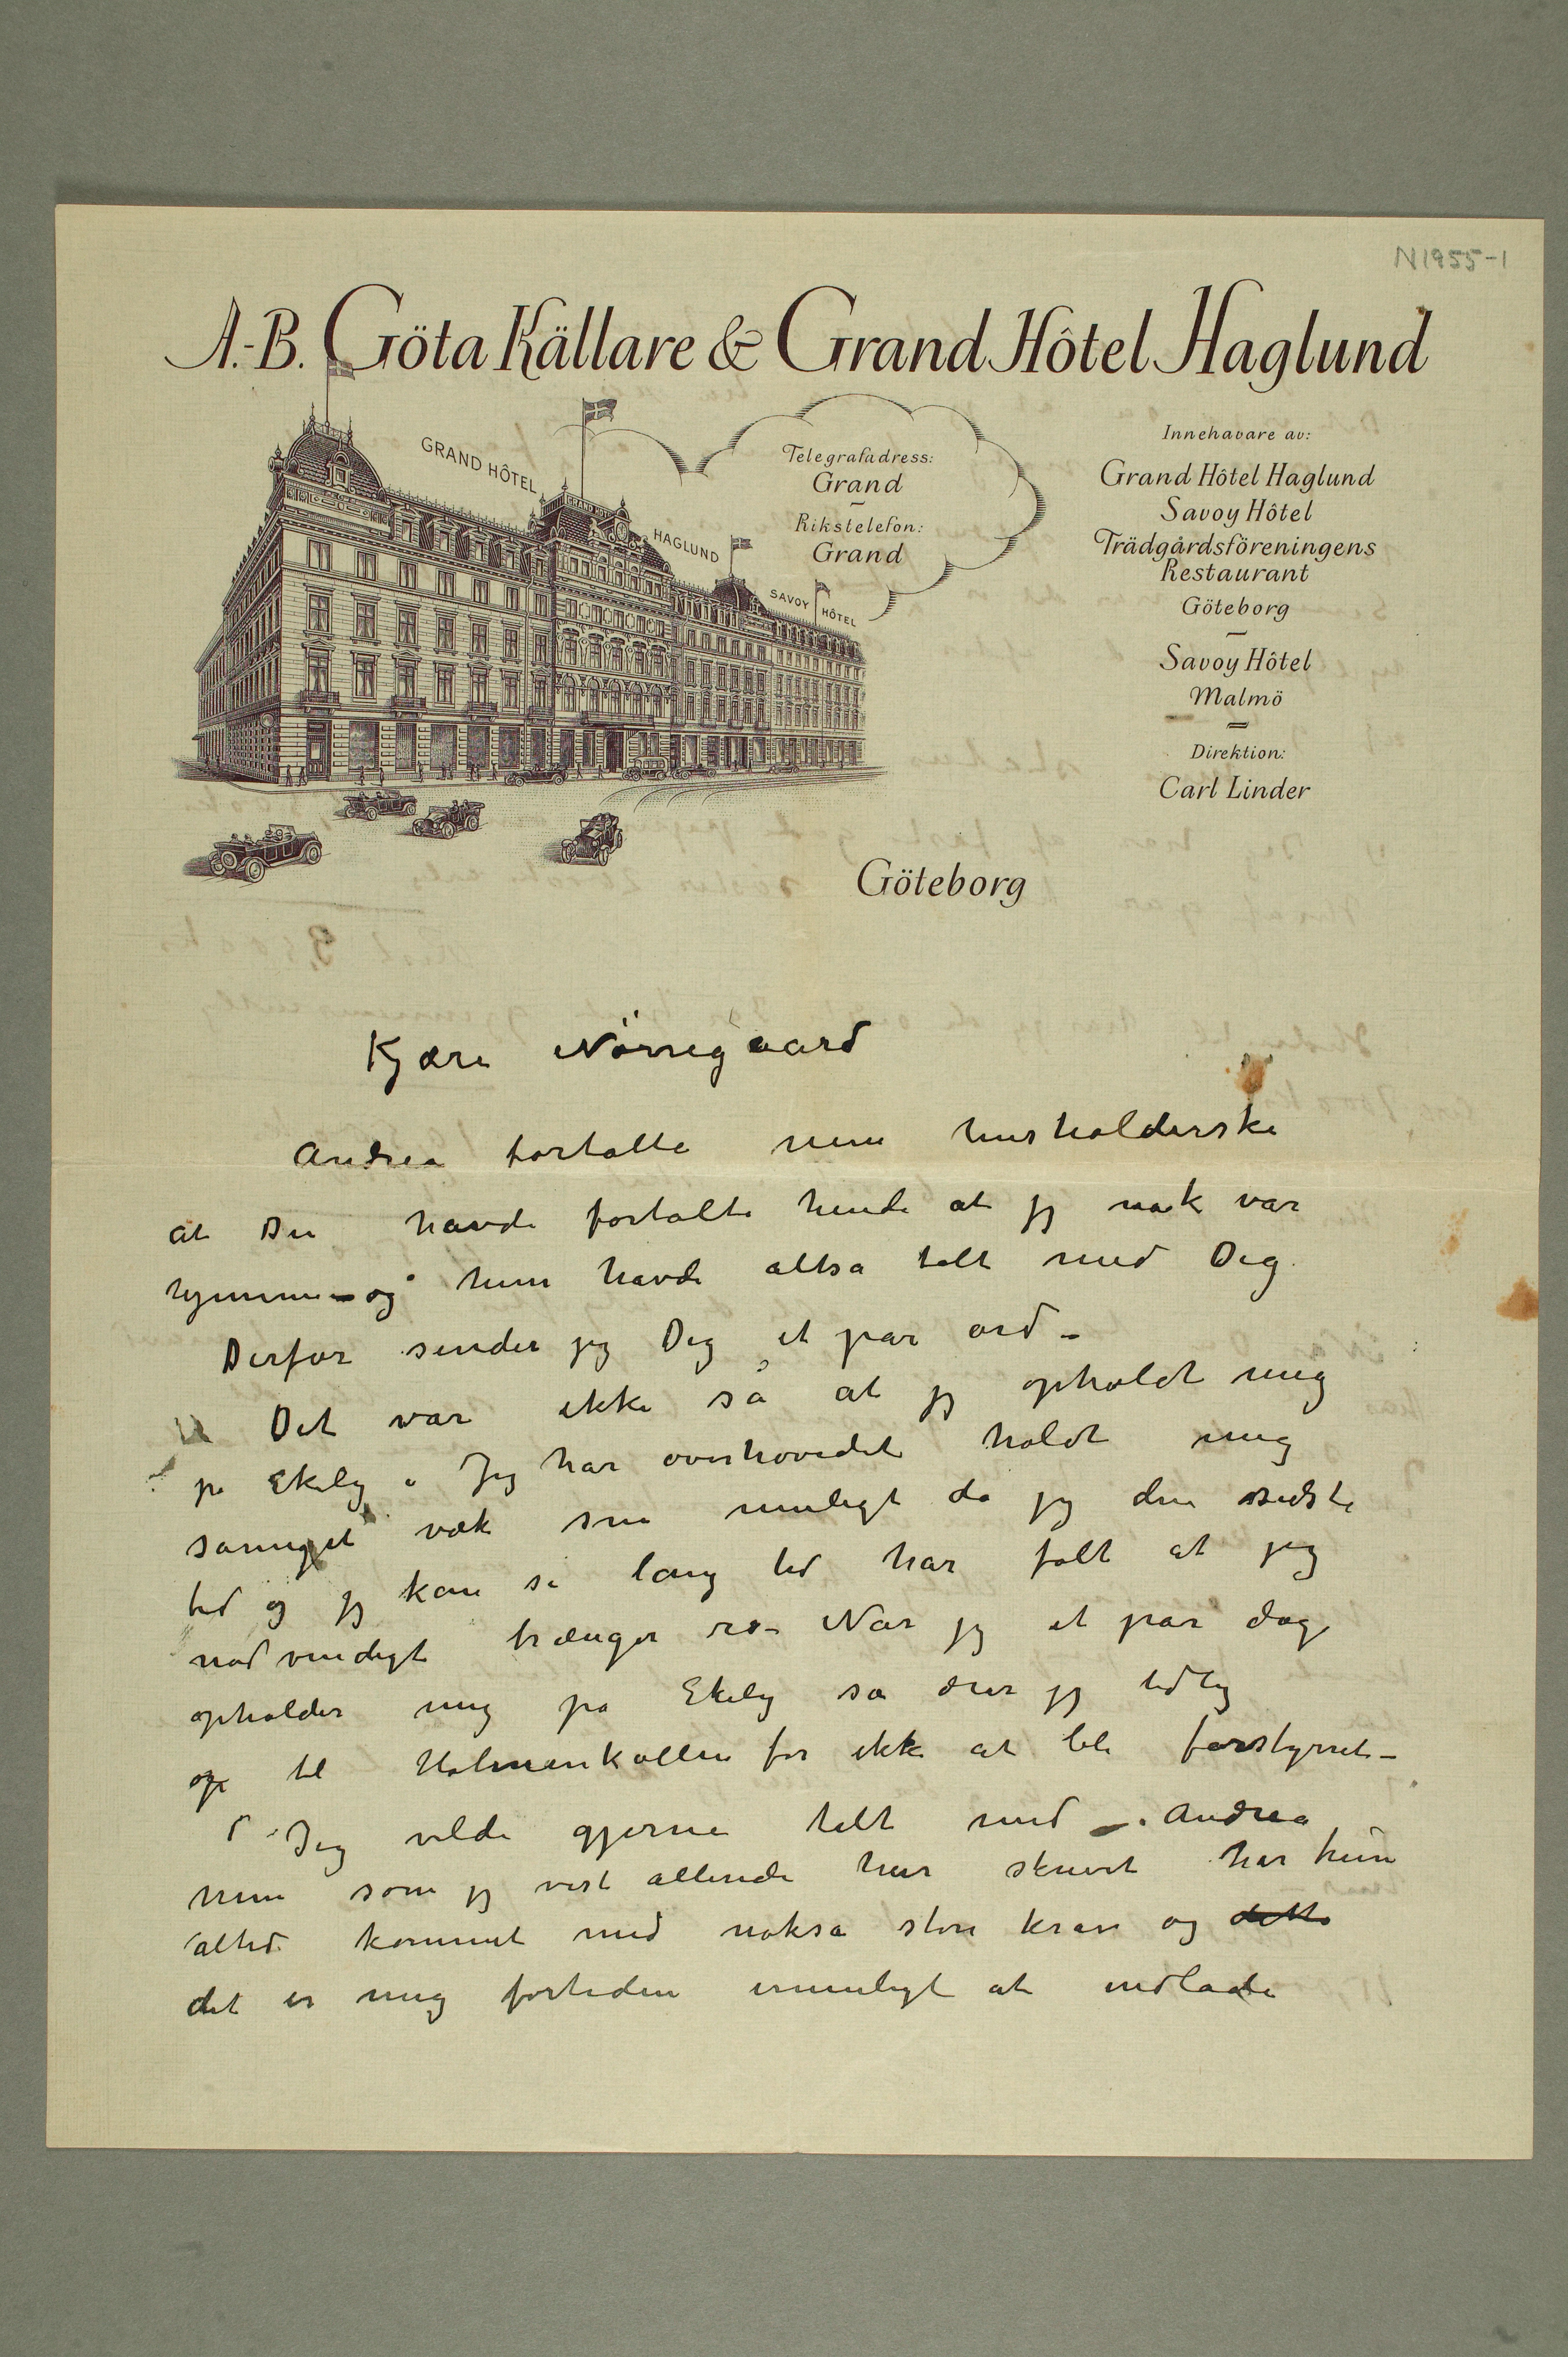 N1955-1
A.-B. Göta Källare & Grand Hôtel Haglund
GRAND HÔTEL HAGLUND
SAVOY HÔTEL
GRAND HOTEL
Telegrafadress:
Grand
Rikstelefon:
Grand
Innehavare av:
Grand Hôtel Haglund
Savoy Hôtel
Trädgårdsföreningens
Restaurant
Göteborg
Savoy Hôtel
Malmö
Direktion:
Carl Linder
Göteborg
Kjære Nörregaard
Andrea fortalte min husholderske
at Du havde fortalte hende at jeg nok var
hjemme – og hun havde altså talt med Dig.
Derfor sender jeg Dig et par ord –
Det var ikke så at jeg opholdt mig
på Ekely. Jeg har overhovedet holdt mig
såmeget væk som muligt da jeg den sidste
tid og jeg kan si lang tid har følt at jeg
nødvendigt trænger ro – Når jeg et par dage
opholder mig på Ekely så drar jeg tidlig
op til Holmenkollen for ikke at bli forstyrret –
Jeg vilde gjerne talt med Andrea
men som jeg vist allerede har skrevet har hun
altid kommet med nokså store krav og
det er mig fortiden umuligt at indlade